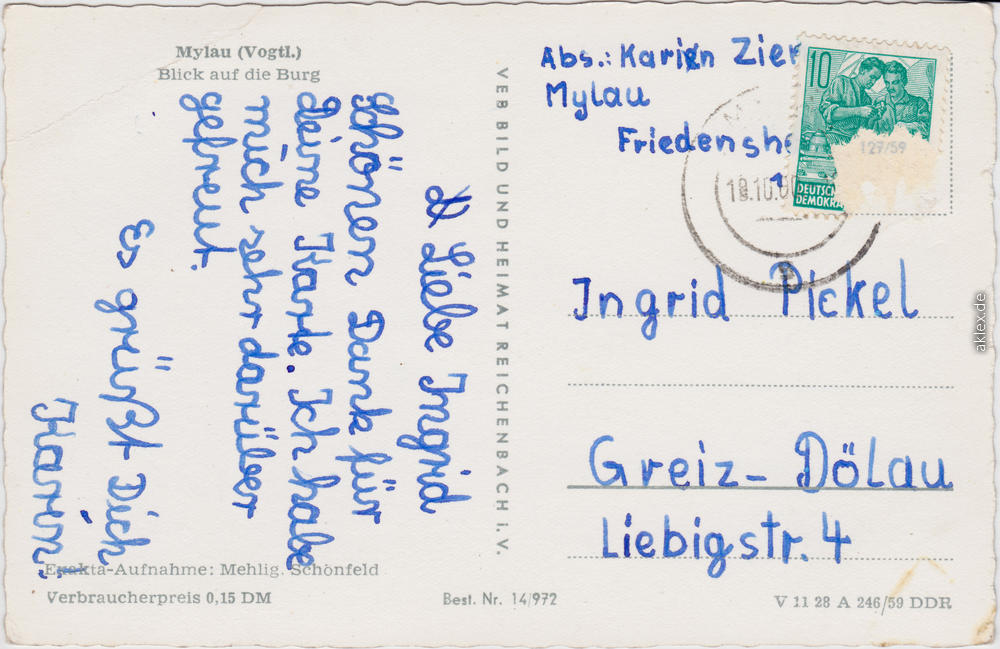 Mylau (Vogtl.)
Blick auf die Burg
Liebe Ingrid
Schönen Dank für
deine Karte. Ich habe
mich sehr darüber
gefreut.
Es grüßt Dich
Karin
Exakta-Aufnahme: Mehlig, Schönfeld
Verbraucherpreis 0,15 DM
VEB BILD UND HEIMAT REICHENBACH i. V.
Best. Nr. 14/972
Abs.: Karin Zier
Mylau
Friedenshe
10
127/59
DEUTSCH
DEMOKRA
Ingrid Pickel
Greiz-Dölau
Liebigstr. 4
V 11 28 A 246/59 DDR
aklex.de